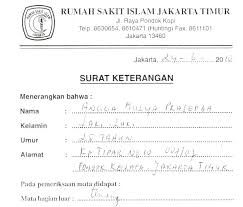 RUMAH SAKIT ISLAM JAKARTA TIMUR
Jl. Raya Pondok Kopi
Telp: 8630654, 8610471 (Hunting) Fax. 8611101
Jakarta 13460
Jakarta, 24 - 6 - 2010
SURAT KETERANGAN
Menerangkan bahwa :
Nama : ANGGA MULYA
Kelamin : LAKI LAKI
Umur : 25 TAHUN
Alamat : KP TIPAR
PONDOK KELAPA, JAKARTA TIMUR
Pada pemeriksaan mata didapat :
Mata bagian luar :